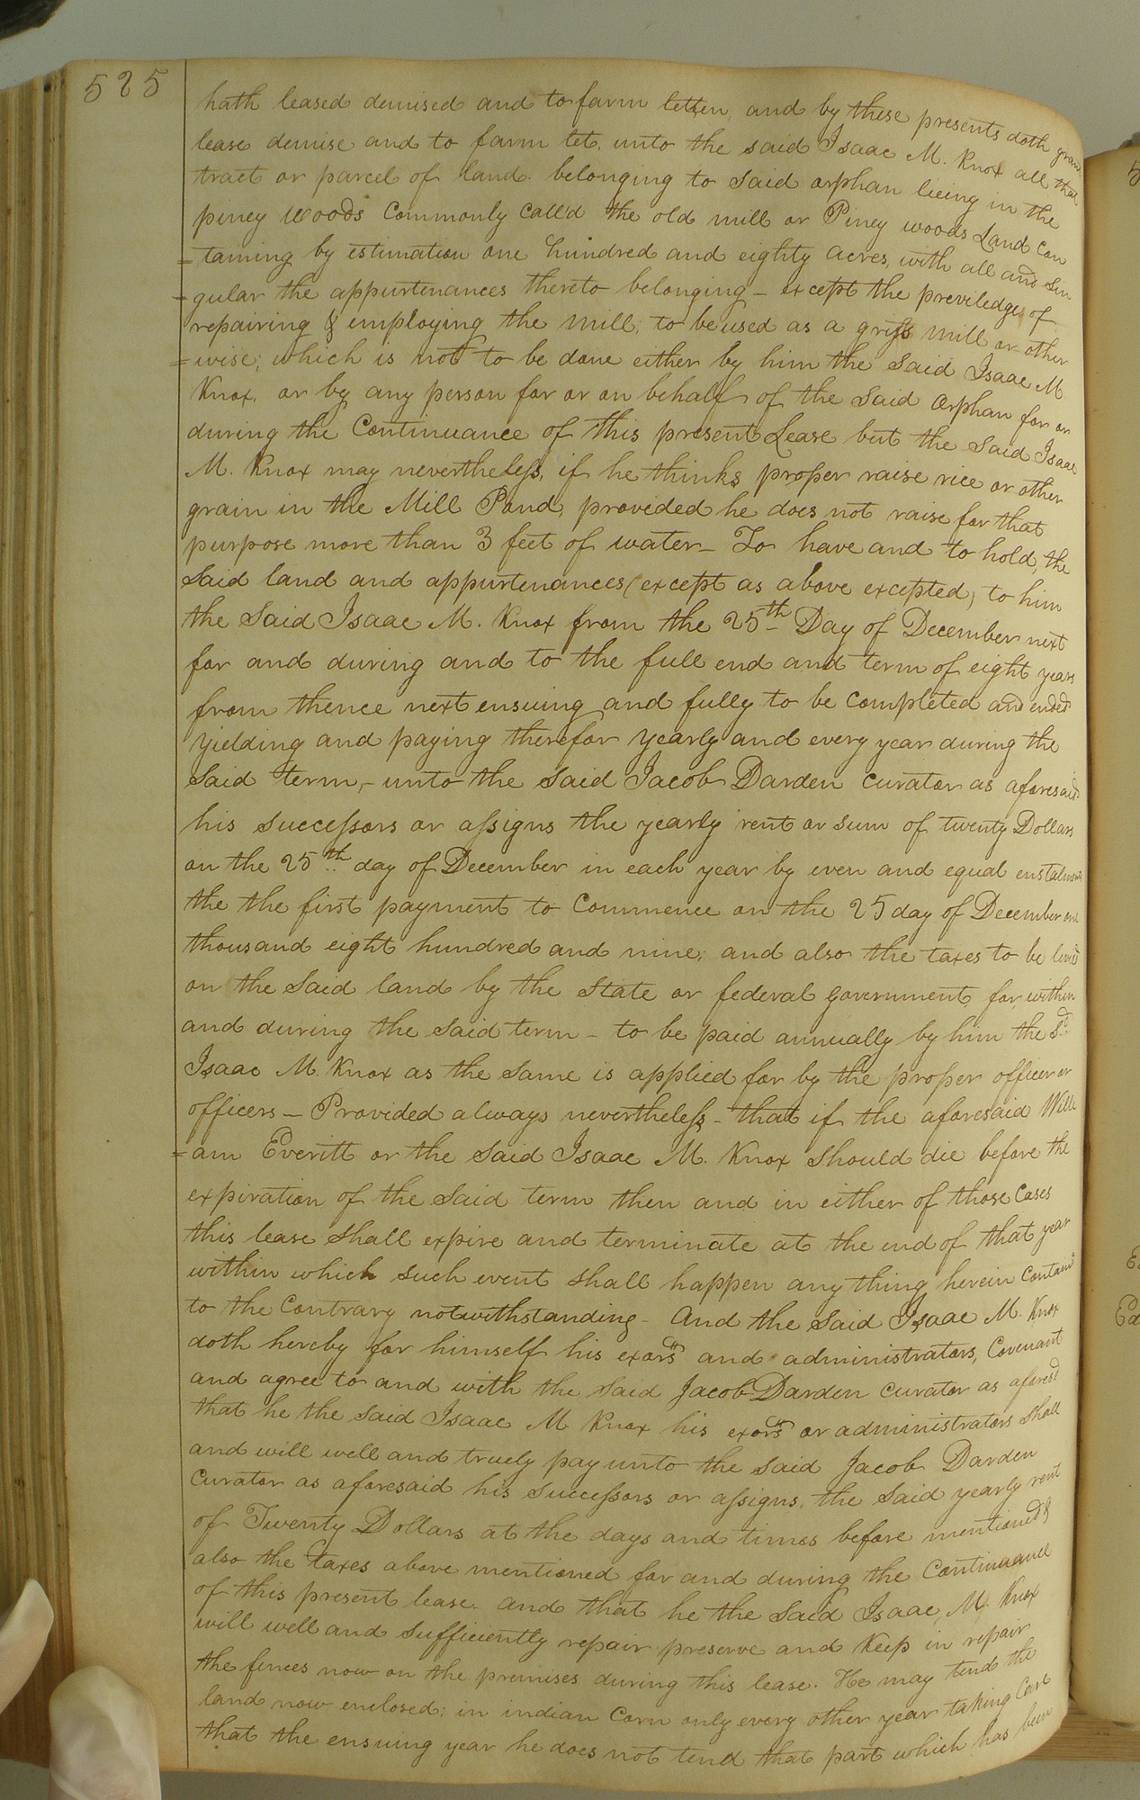 525
hath leased demised and to farm letten, and by these presents doth grant
lease demise and to farm let, unto the said Isaac M. Knox all that
tract or parcel of land belonging to said orphan lieing in the
piney woods Commonly Call'd the old mill or Piney woods Land Con
=taining by estimation one hundred and eighty acres, with all and Sin
=gular the appurtenances thereto belonging – except the previledges of
repairing & employing the mill, to be used as a grist mill or other
=wise; which is not to be done either by him the Said Isaac M
Knox, or by any person for or on behalf of the Said Orphan for or
during the Continuance of this present Lease but the Said Isaac
M. Knox may nevertheless, if he thinks proper raise rice or other
grain in the Mill Pond, provided he does not raise for that
purpose more than 3 feet of water – To have and to hold, the
Said land and appurtenances (except as above excepted) to him
the Said Isaac M. Knox from the 25th Day of December next
for and during and to the full end and term of eight years
from thence next ensuing and fully to be Completed and ended
Yielding and paying therefor Yearly and every year during the
Said term, – unto the Said Jacob Darden Curator as aforesaid
his successors or assigns the yearly rent or Sum of twenty Dollars
on the 25th day of December in each year by even and equal enstalments
the the first payment to Commence on the 25 day of December one
thousand eight hundred and nine; and also the taxes to be levied
on the Said land by the State or federal government for, within
and during the Said term – to be paid annually by him the Sd
Isaac M. Knox as the Same is applied for by the proper officer or
officers – Provided always nevertheless – that if the aforesaid Willi
=am Everitt or the Said Isaac M. Knox should die before the
expiration of the Said term then and in either of those Cases
this lease Shall expire and terminate at the end of that year
within which such event shall happen any thing herein Contain'd
to the Contrary notwithstanding – And the Said Isaac M. Knox
doth hereby for himself his exors and administrators, Covenant
and agree to and with the Said Jacob Darden Curator as aforesd
that he the Said Isaac M Knox his exors or administrators Shall
and will well and truely pay unto the Said Jacob Darden
Curator as aforesaid his Successors or assigns, the Said yearly rent
of Twenty Dollars at the days and times before mentioned &
also the taxes above mentioned for and during the Continuance
of this present lease. and that he the Said Isaac M. Knox
will well and sufficiently repair preserve and Keep in repair
the fences now on the premises during this lease. He may tend the
land now enclosed; in indian Corn only every other year taking Care
that the ensuing year he does not tend that part which has been